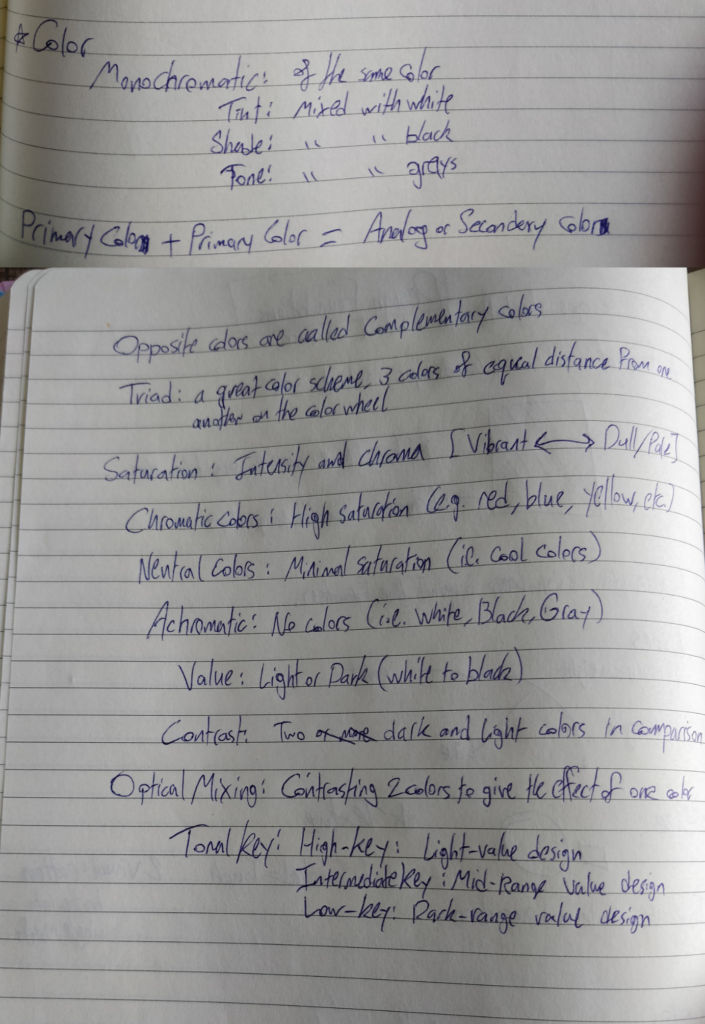 * Color
Monochromatic: of the same color
Tint: Mixed with white
Shade: " " black
Tone: " " grays
Primary Color + Primary Color = Analog or Secondary Color
Opposite colors are called Complementary colors
Triad: a great color scheme, 3 colors of equal distance from one
another on the color wheel
Saturation: Intensity and chroma [Vibrant ⟷ Dull/Pale]
Chromatic colors: High saturation (e.g. red, blue, yellow, etc.)
Neutral Colors: Minimal saturation (i.e. cool colors)
Achromatic: No colors (i.e. White, Black, Gray)
Value: Light or Dark (white to black)
Contrast: Two or more dark and light colors in comparison
Optical Mixing: Contrasting 2 colors to give the effect of one color
Tonal key: High-key: Light-value design
Intermediate key: Mid-Range value design
Low-key: Dark-range value design